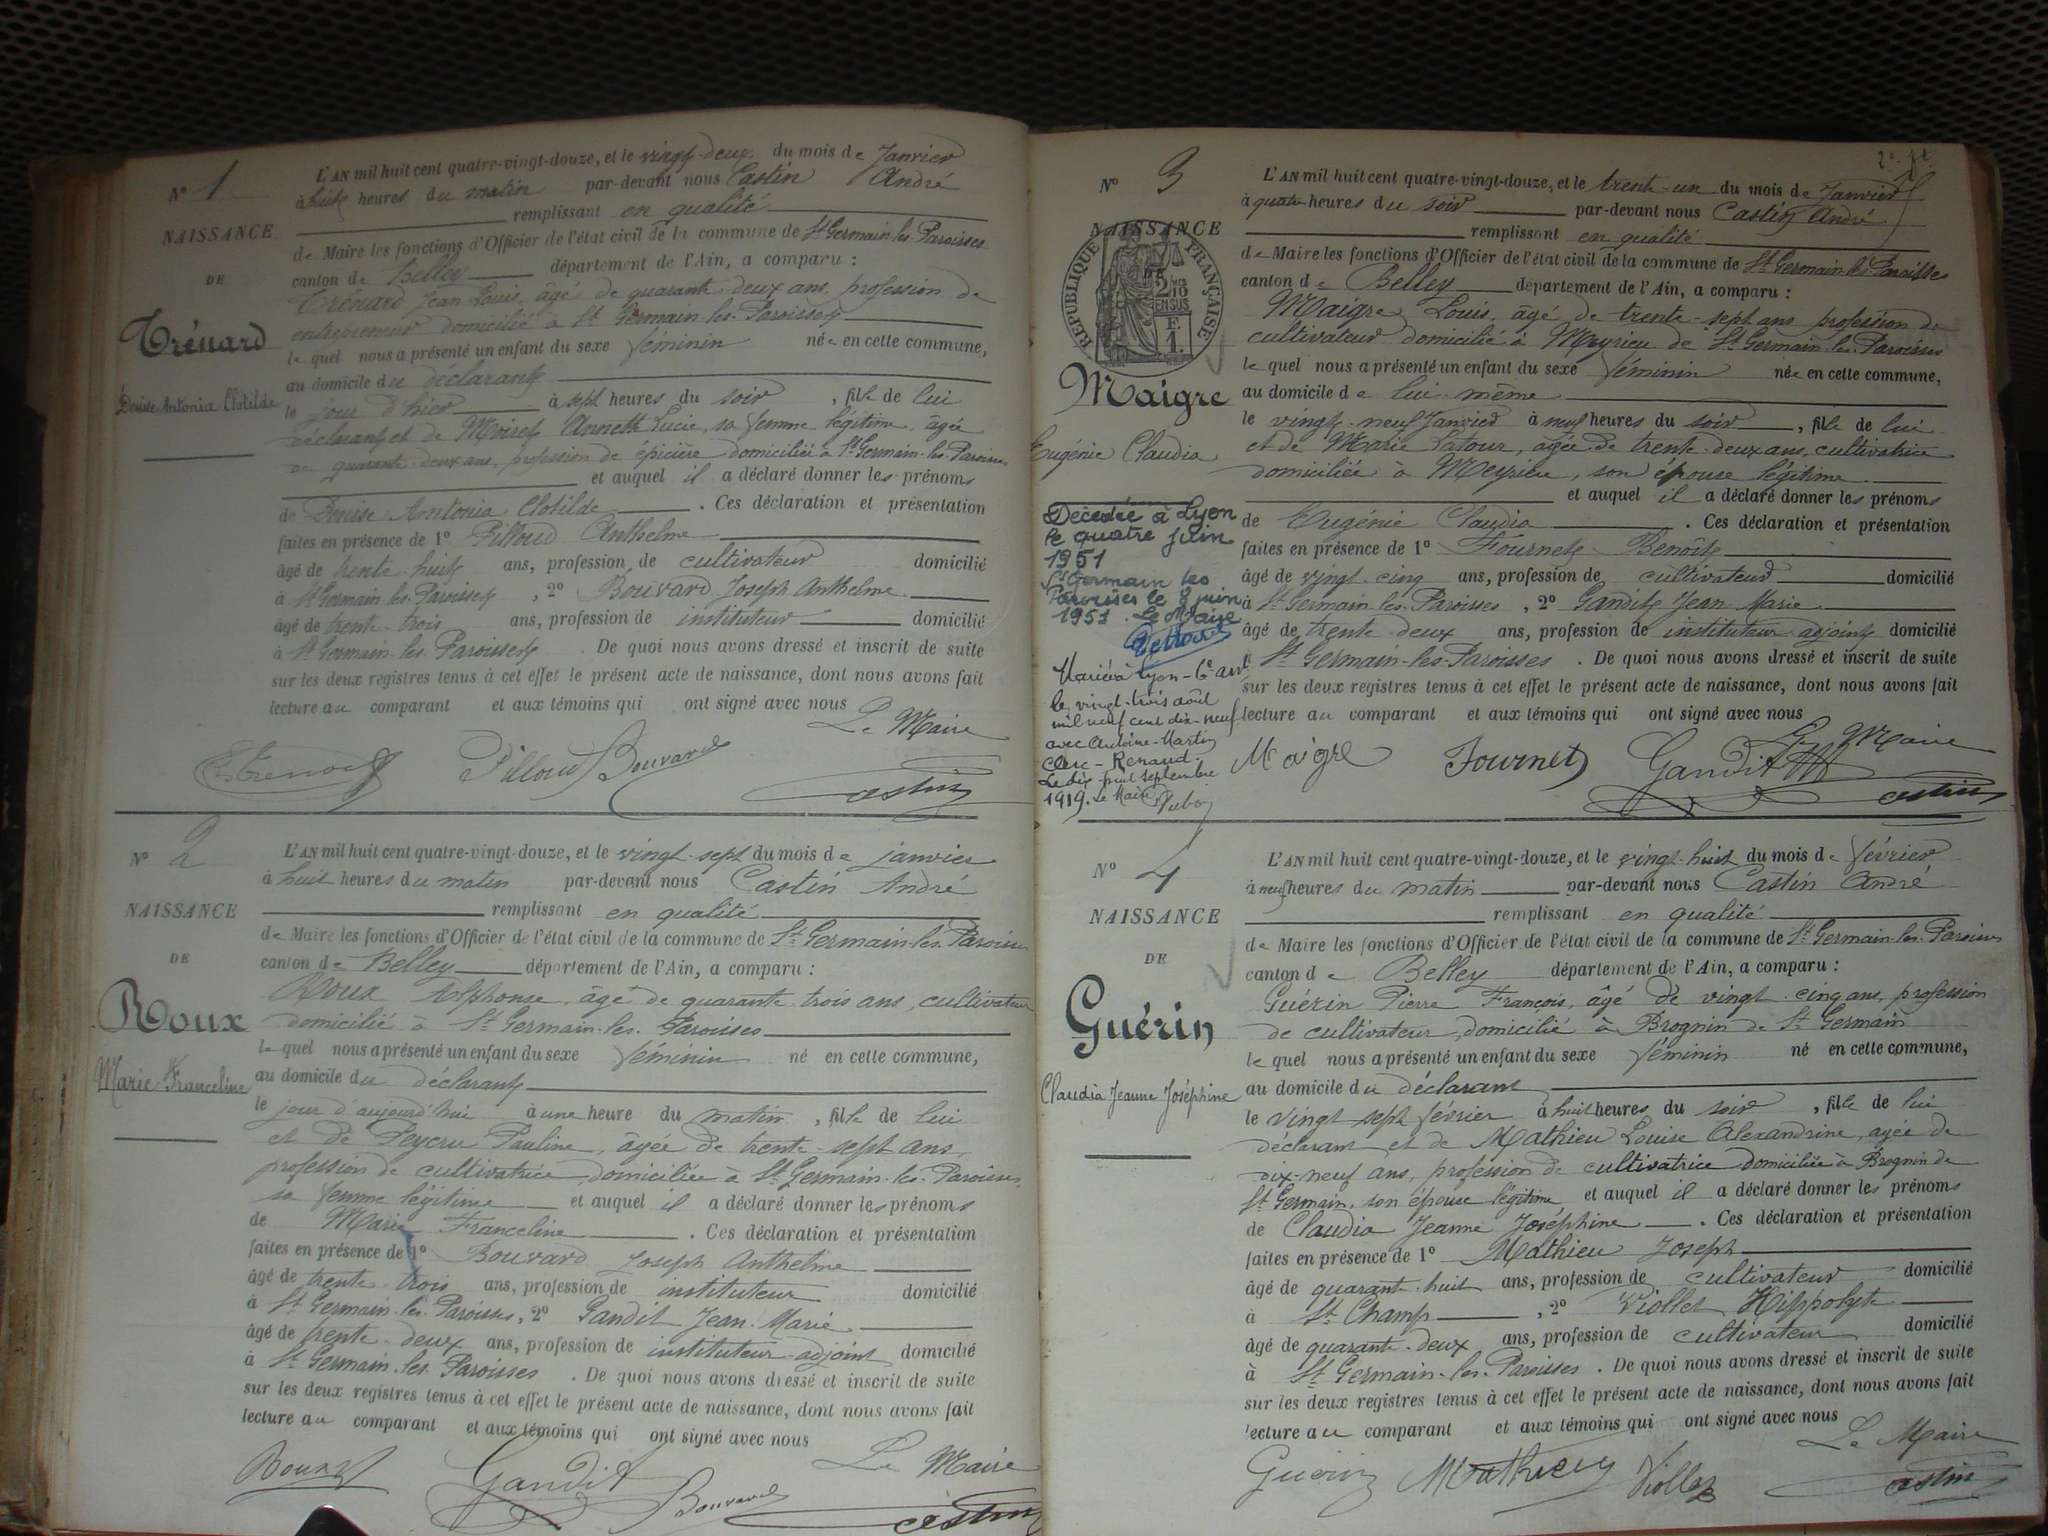 N° 1
NAISSANCE
DE
Trénard
Denise Antonia Clotilde
L'AN mil huit cent quatre-vingt-douze, et le vingt-deux du mois de Janvier
à huit heures du matin par-devant nous Castin André
remplissant en qualité
de Maire les fonctions d'Officier de l'état civil de la commune de St Germain-les-Paroisses
canton de Belley département de l'Ain, a comparu :
Trénard Jean Louis, âgé de quarante-deux ans, profession de
entrepreneur domicilié à St Germain-les-Paroisses
le quel nous a présenté un enfant du sexe féminin née en cette commune,
au domicile du déclarant
le jour d'hier à sept heures du soir, fille de lui
déclarant et de Moiret Annette Lucie, sa femme légitime, âgée
de quarante-deux ans, profession de épicière domiciliée à St Germain-les-Paroisses
et auquel il a déclaré donner les prénoms
de Denise Antonia Clotilde. Ces déclaration et présentation
faites en présence de 1° Pilloud Anthelme
âgé de trente-huit ans, profession de cultivateur domicilié
à St Germain-les-Paroisses, 2° Bouvard Joseph Anthelme
âgé de trente-trois ans, profession de instituteur domicilié
à St Germain-les-Paroisses. De quoi nous avons dressé et inscrit de suite
sur les deux registres tenus à cet effet le présent acte de naissance, dont nous avons fait
lecture au comparant et aux témoins qui ont signé avec nous
Le Maire
Pilloud Bouvard Castin
N° 2
NAISSANCE
DE
Roux
Marie Franceline
L'AN mil huit cent quatre-vingt-douze, et le vingt-sept du mois de janvier
à huit heures du matin par-devant nous Castin André
remplissant en qualité
de Maire les fonctions d'Officier de l'état civil de la commune de St Germain-les-Paroisses
canton de Belley département de l'Ain, a comparu :
Roux Alphonse, âgé de quarante-trois ans, cultivateur
domicilié à St Germain-les-Paroisses
le quel nous a présenté un enfant du sexe féminin né en cette commune,
au domicile du déclarant
le jour d'aujourd'hui à une heure du matin, fille de lui
et de Peycru Pauline, âgée de trente-sept ans,
profession de cultivatrice, domiciliée à St Germain-les-Paroisses,
sa femme légitime et auquel il a déclaré donner les prénoms
de Marie Franceline. Ces déclaration et présentation
faites en présence de 1° Bouvard Joseph Anthelme
âgé de trente-trois ans, profession de instituteur domicilié
à St Germain-les-Paroisses, 2° Gandit Jean-Marie
âgé de trente-deux ans, profession de instituteur-adjoint domicilié
à St Germain-les-Paroisses. De quoi nous avons dressé et inscrit de suite
sur les deux registres tenus à cet effet le présent acte de naissance, dont nous avons fait
lecture au comparant et aux témoins qui ont signé avec nous
Le Maire
Gandit Bouvard Castin
N° 3
NAISSANCE
RÉPUBLIQUE FRANÇAISE
Maigre
Eugénie Claudia
Décédée à Lyon
le quatre juin
1951
St Germain les
Paroisses le 8 juin
1951. Le Maire
Mariée à Lyon-6e arrt
le vingt-trois août
mil neuf cent dix-neuf
avec Antoine-Martin
Clerc-Renaud.
Le dix-huit septembre
1919. Le Maire
L'AN mil huit cent quatre-vingt-douze, et le trente-un du mois de Janvier
à quatre heures du soir par-devant nous Castin André
remplissant en qualité
de Maire les fonctions d'Officier de l'état civil de la commune de St Germain-les-Paroisses
canton de Belley département de l'Ain, a comparu :
Maigre Louis, âgé de trente-sept ans profession de
cultivateur domicilié à Meyrieu de St Germain-les-Paroisses
le quel nous a présenté un enfant du sexe féminin née en cette commune,
au domicile de lui-même
le vingt-neuf Janvier à neuf heures du soir, fille de lui
et de Marie Latour, âgée de trente-deux ans, cultivatrice
domiciliée à Meyrieu, son épouse légitime
et auquel il a déclaré donner les prénoms
de Eugénie Claudia. Ces déclaration et présentation
faites en présence de 1° Fournet Benoît
âgé de vingt-cinq ans, profession de cultivateur domicilié
à St Germain-les-Paroisses, 2° Gandit Jean Marie
âgé de trente-deux ans, profession de instituteur adjoint domicilié
à St Germain-les-Paroisses. De quoi nous avons dressé et inscrit de suite
sur les deux registres tenus à cet effet le présent acte de naissance, dont nous avons fait
lecture au comparant et aux témoins qui ont signé avec nous
Le Maire
Maigre Fournet Gandit Castin
N° 4
NAISSANCE
DE
Guérin
Claudia Jeanne Joséphine
L'AN mil huit cent quatre-vingt-douze, et le vingt-huit du mois de Février
à neuf heures du matin par-devant nous Castin André
remplissant en qualité
de Maire les fonctions d'Officier de l'état civil de la commune de St Germain-les-Paroisses
canton de Belley département de l'Ain, a comparu :
Guérin Pierre François, âgé de vingt-cinq ans, profession
de cultivateur, domicilié à Brognin de St Germain
le quel nous a présenté un enfant du sexe féminin né en cette commune,
au domicile du déclarant
le vingt sept février à huit heures du soir, fille de lui
déclarant et de Mathieu Louise Alexandrine, agée de
dix-neuf ans, profession de cultivatrice domiciliée à Brognin de
St Germain, son épouse légitime et auquel il a déclaré donner les prénoms
de Claudia Jeanne Joséphine. Ces déclaration et présentation
faites en présence de 1° Mathieu Joseph
âgé de quarant-huit ans, profession de cultivateur domicilié
à St Champ, 2° Viollet Hippolyte
âgé de quarante-deux ans, profession de cultivateur domicilié
à St Germain-les-Paroisses. De quoi nous avons dressé et inscrit de suite
sur les deux registres tenus à cet effet le présent acte de naissance, dont nous avons fait
lecture au comparant et aux témoins qui ont signé avec nous
Le Maire
Guérin Mathieu Viollet Castin